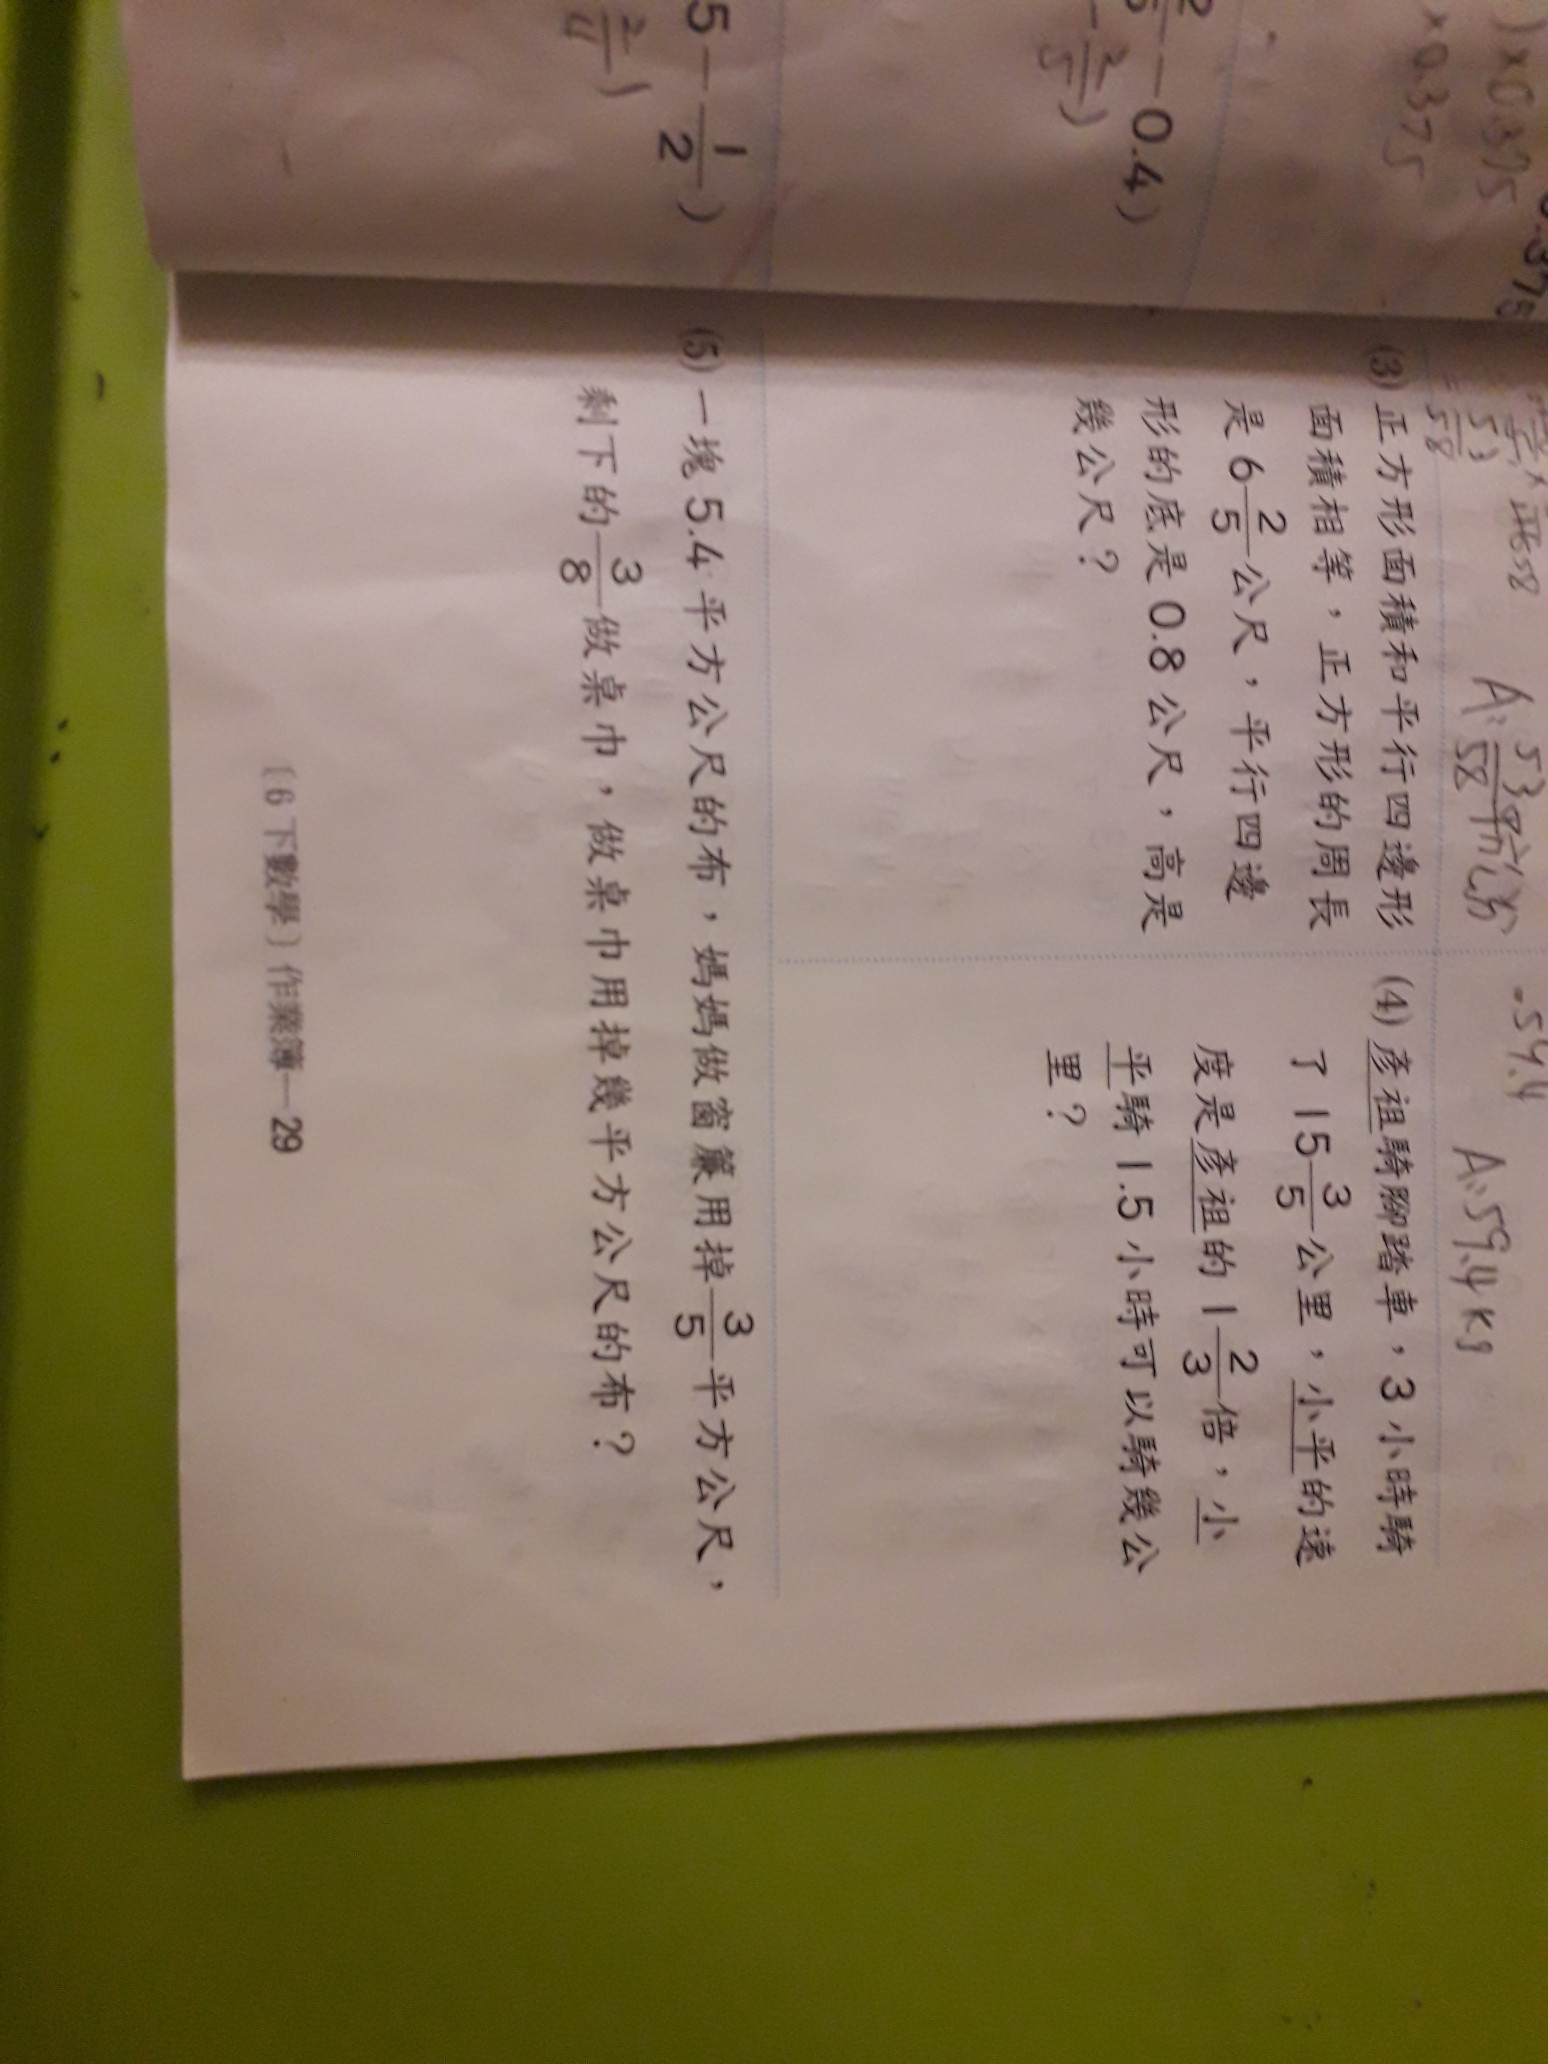 2/5 — 0.4)
5 — 1/2)
) × 0.375
× 0.375
A: 53/58平方公分
- 59.4
A: 59.4 kg
(3) 正方形面積和平行四邊形
面積相等,正方形的周長
是 6 2/5 公尺,平行四邊
形的底是 0.8 公尺,高是
幾公尺?
(4) 彥祖騎腳踏車,3 小時騎
了 15 3/5 公里,小平的速
度是彥祖的 1 2/3 倍,小
平騎 1.5 小時可以騎幾公
里?
(5) 一塊 5.4 平方公尺的布,媽媽做窗簾用掉 3/5 平方公尺,
剩下的 3/8 做桌巾,做桌巾用掉幾平方公尺的布?
〔6 下數學〕作業簿—29